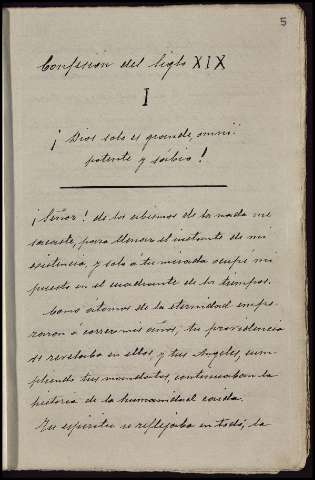 5
Confesion del Siglo XIX
I
¡Dios solo es grande, omni-
potente y sábio!
¡Señor! de los abismos de la nada me
sacaste, para llenar el instante de mi
existencia, y solo á tu mirada ocupé mi
puesto en el cuadrante de los tiempos.
Como átomos de la eternidad empe-
zaron á correr mis años, tu providencia
se revelaba en ellos y tus Angeles, cum-
pliendo tus mandatos, continuaban la
historia de la humanidad caida.
Tu espíritu se reflejaba en todo, la